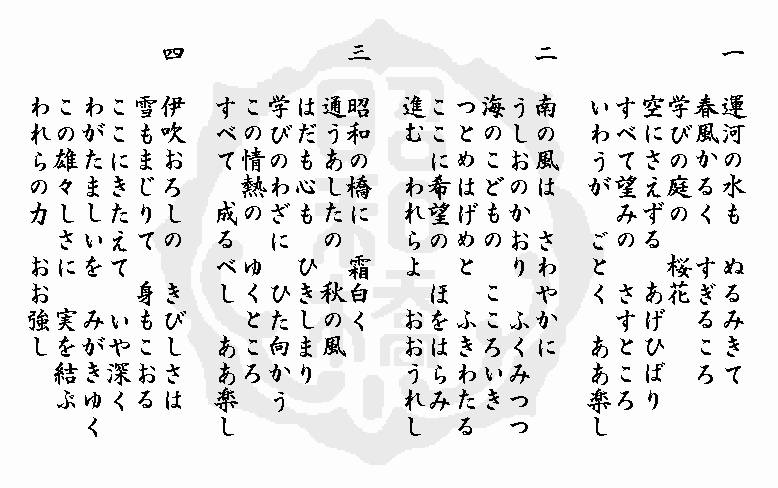 一
運河の水も ぬるみきて
春風かるく すぎるころ
学びの庭の 桜花
空にさえずる あげひばり
すべて望みの さすところ
いわうが ごとく ああ楽し
二
南の風は さわやかに
うしおのかおり ふくみつつ
海のこどもの こころいき
つとめはげめと ふきわたる
ここに希望の ほをはらみ
進む われらよ おおうれし
三
昭和の橋に 霜白く
通うあしたの 秋の風
はだも心も ひきしまり
学びのわざに ひた向かう
この情熱の ゆくところ
すべて 成るべし ああ楽し
四
伊吹おろしの きびしさは
雪もまじりて 身もこおる
ここにきたえて いや深く
わがたましいを みがきゆく
この雄々しさに 実を結ぶ
われらの力 おお強し
昭和橋